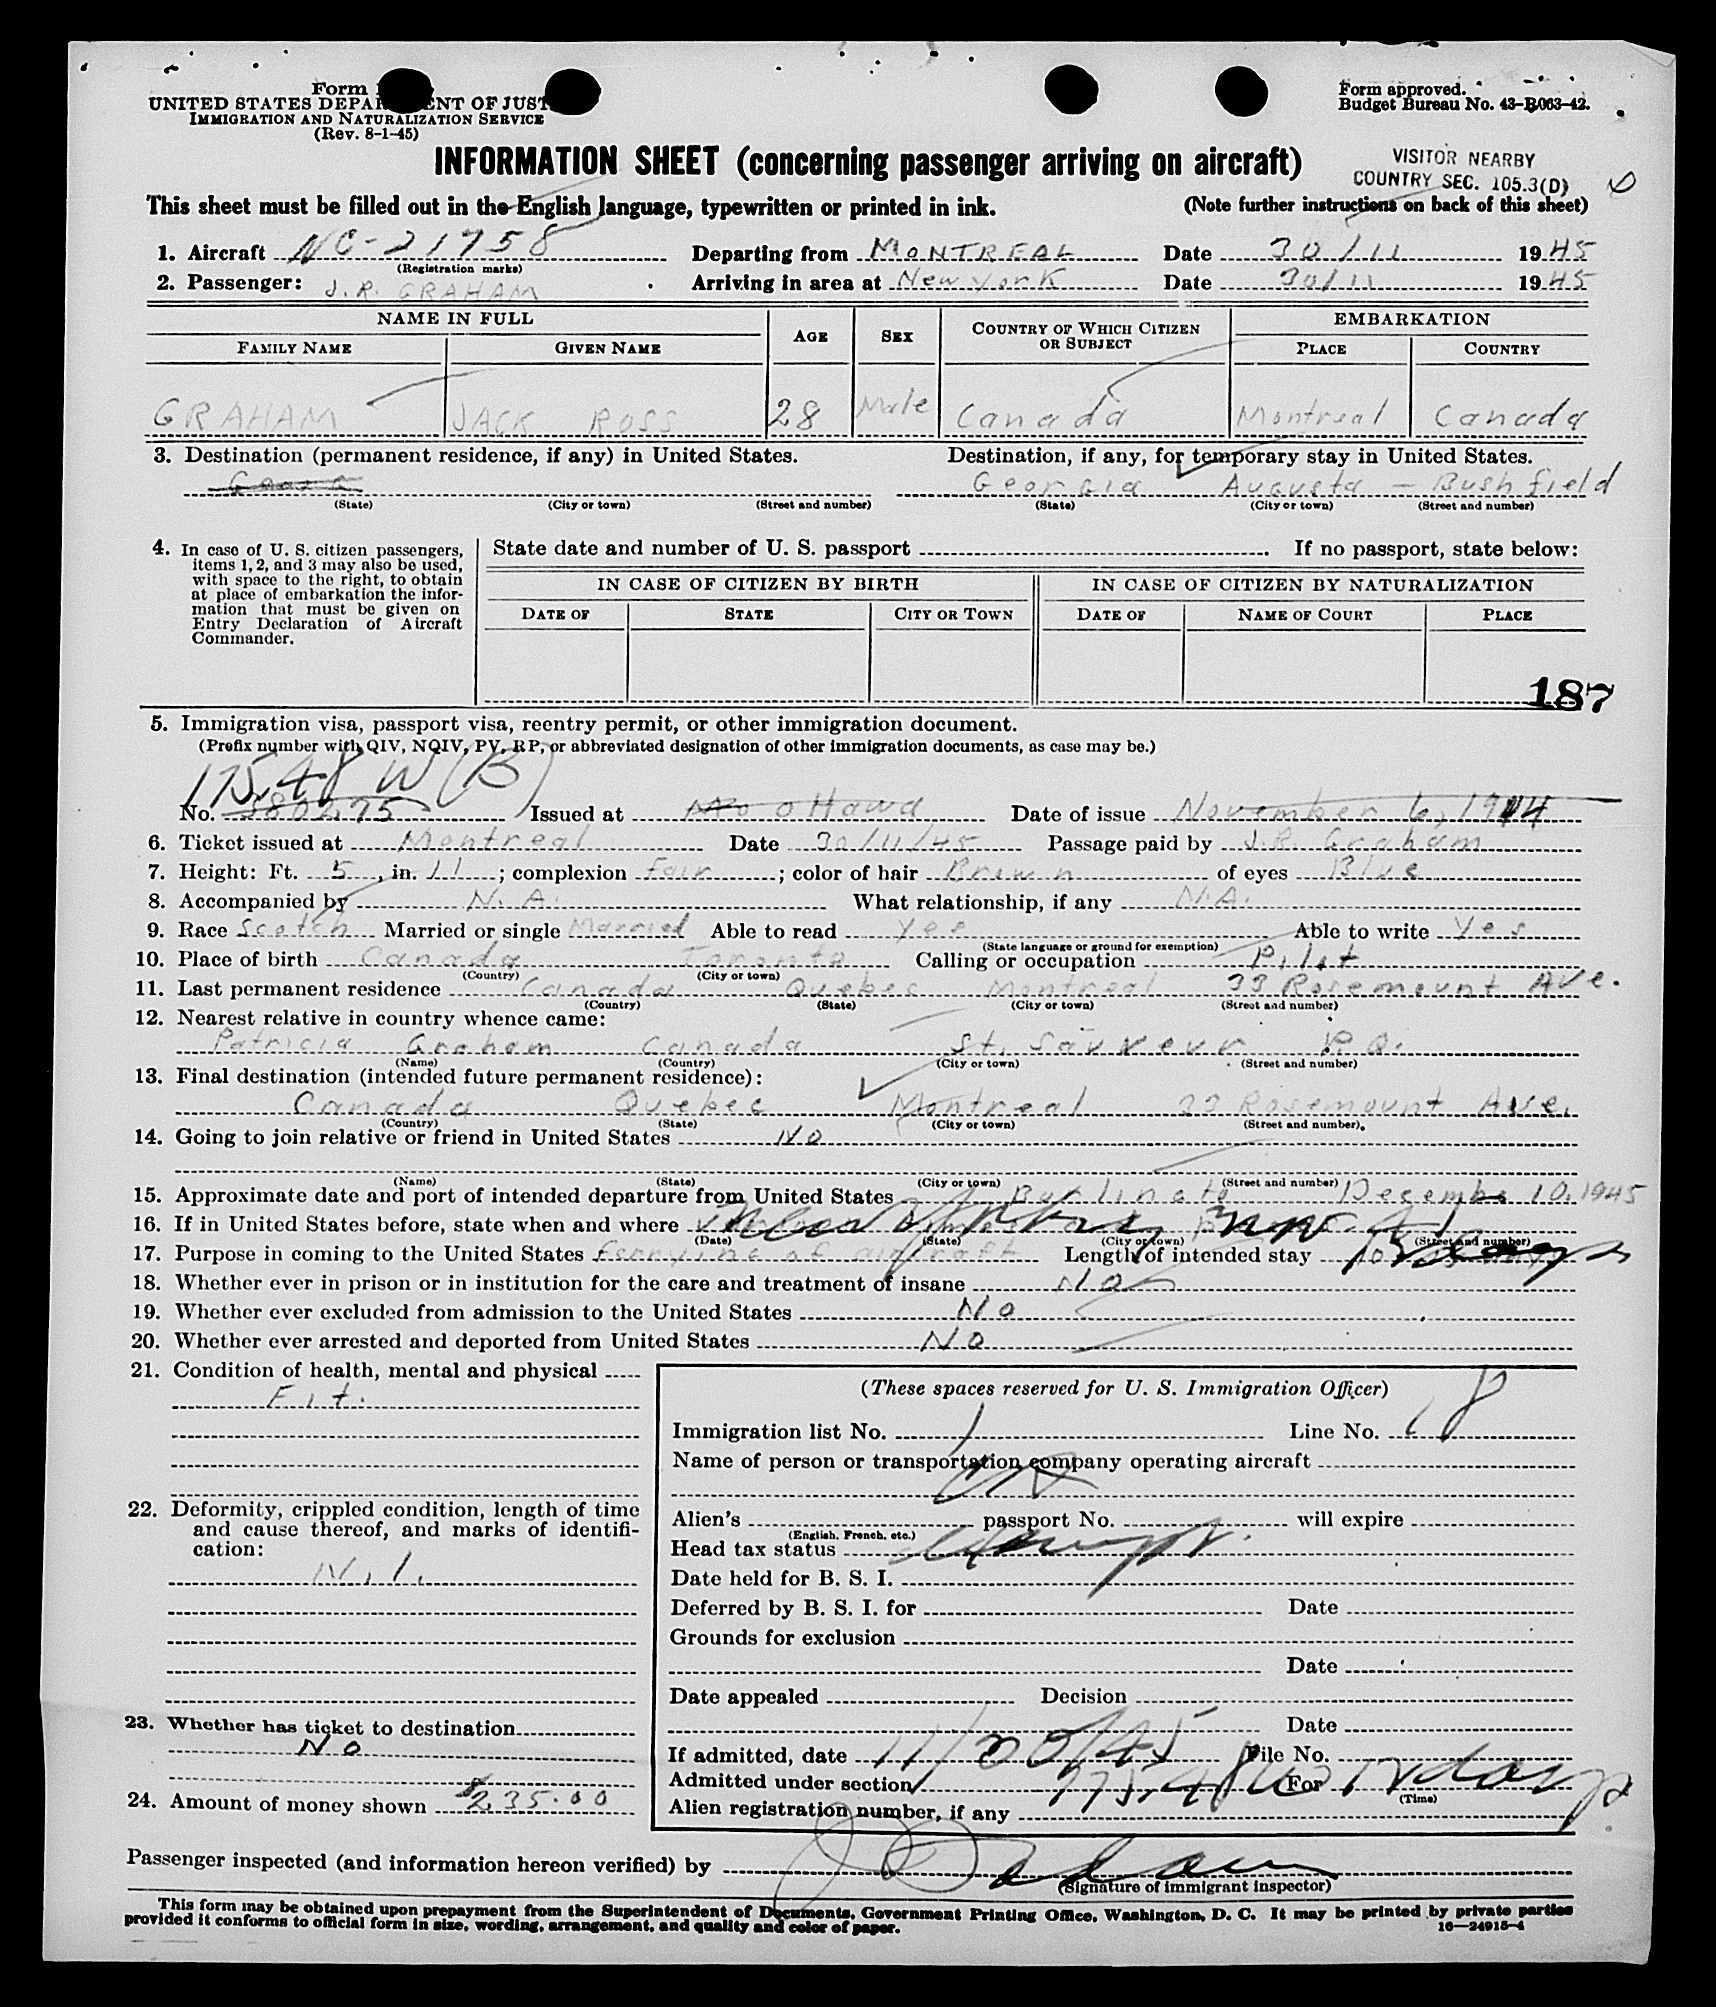 Form
UNITED STATES DEPARTMENT OF JUST
IMMIGRATION AND NATURALIZATION SERVICE
(Rev. 8-1-45)
Form approved.
Budget Bureau No. 43-R063-42.
INFORMATION SHEET (concerning passenger arriving on aircraft)
VISITOR NEARBY
COUNTRY SEC. 105.3(D)
This sheet must be filled out in the English language, typewritten or printed in ink.
(Note further instructions on back of this sheet)
1. Aircraft NC-21758 Departing from MONTREAL Date 30/11 1945
(Registration marks)
2. Passenger: J.R. GRAHAM Arriving in area at New York Date 30/11 1945
NAME IN FULL AGE SEX COUNTRY OF WHICH CITIZEN OR SUBJECT EMBARKATION
FAMILY NAME GIVEN NAME PLACE COUNTRY
GRAHAM JACK ROSS 28 Male Canada Montreal Canada
3. Destination (permanent residence, if any) in United States. Destination, if any, for temporary stay in United States.
Georgia Augusta - Bushfield
(State) (City or town) (Street and number) (State) (City or town) (Street and number)
4. In case of U. S. citizen passengers,
items 1, 2, and 3 may also be used,
with space to the right, to obtain
at place of embarkation the infor-
mation that must be given on
Entry Declaration of Aircraft
Commander.
State date and number of U. S. passport . If no passport, state below:
IN CASE OF CITIZEN BY BIRTH IN CASE OF CITIZEN BY NATURALIZATION
DATE OF STATE CITY OR TOWN DATE OF NAME OF COURT PLACE
187
5. Immigration visa, passport visa, reentry permit, or other immigration document.
(Prefix number with QIV, NQIV, PV, RP, or abbreviated designation of other immigration documents, as case may be.)
175.48 W (B)
No. 380275 Issued at Ottawa Date of issue November 6, 1944
6. Ticket issued at Montreal Date 30/11/45 Passage paid by J.R. Graham
7. Height: Ft. 5, in. 11; complexion fair; color of hair Brown of eyes Blue
8. Accompanied by N.A. What relationship, if any N.A.
9. Race Scotch Married or single Married Able to read Yes Able to write Yes
(State language or ground for exemption)
10. Place of birth Canada Toronto Calling or occupation Pilot
(Country) (City or town)
11. Last permanent residence Canada Quebec Montreal 33 Rosemount Ave.
(Country) (State) (City or town) (Street and number)
12. Nearest relative in country whence came:
Patricia Graham Canada St. Sauveur P.Q.
(Name) (Country) (City or town) (Street and number)
13. Final destination (intended future permanent residence):
Canada Quebec Montreal 33 Rosemount Ave.
(Country) (State) (City or town) (Street and number).
14. Going to join relative or friend in United States No
(Name) (State) (City or town) (Street and number)
15. Approximate date and port of intended departure from United States December 10, 1945
16. If in United States before, state when and where
(Date) (State) (City or town) (Street and number)
17. Purpose in coming to the United States Ferrying of aircraft Length of intended stay days
18. Whether ever in prison or in institution for the care and treatment of insane No
19. Whether ever excluded from admission to the United States No
20. Whether ever arrested and deported from United States No
21. Condition of health, mental and physical
Fit.
22. Deformity, crippled condition, length of time
and cause thereof, and marks of identifi-
cation:
N.I.
23. Whether has ticket to destination
No
24. Amount of money shown $235.00
(These spaces reserved for U. S. Immigration Officer)
Immigration list No. 1 Line No.
Name of person or transportation company operating aircraft
Alien's passport No. will expire
(English, French, etc.)
Head tax status Exempt.
Date held for B. S. I.
Deferred by B. S. I. for Date
Grounds for exclusion
Date
Date appealed Decision
Date
If admitted, date File No.
Admitted under section 175.48 For days
(Time)
Alien registration number, if any
Passenger inspected (and information hereon verified) by
(Signature of immigrant inspector)
This form may be obtained upon prepayment from the Superintendent of Documents, Government Printing Office, Washington, D. C. It may be printed by private parties
provided it conforms to official form in size, wording, arrangement, and quality and color of paper.
16-24915-4